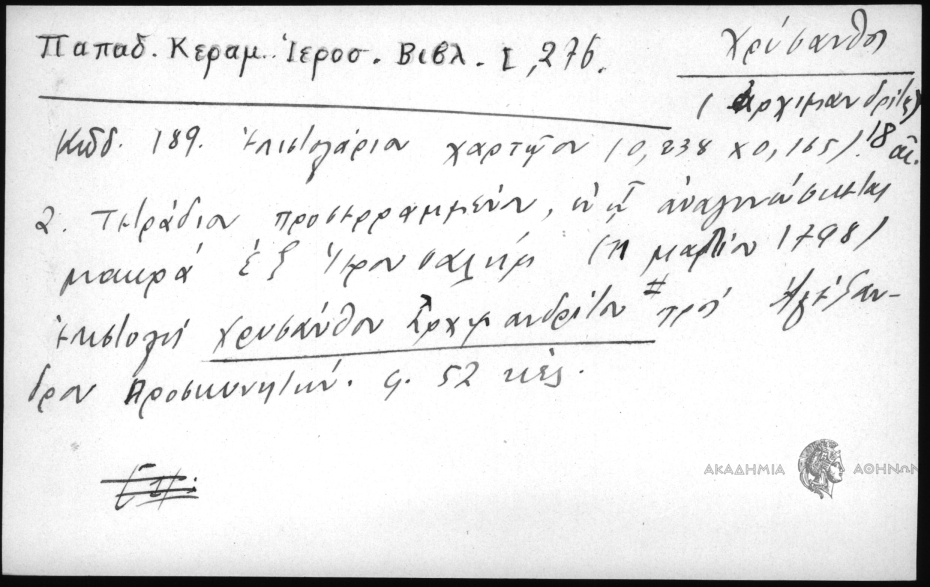 Παπαδ. Κεραμ. Ἱεροσ. Βιβλ. I, 276.
Χρύσανθος
(Ἀρχιμανδρίτης)
Κῶδ. 189. Ἐπιστολάριον χαρτῷον (0,238 x 0,165). 18 αἰ.
2. Τετράδιον προσερραμμένον, ἐν ᾧ ἀναγινώσκεται
μακρά ἐξ Ἱερουσαλήμ (11 μαρτίου 1798)
ἐπιστολή Χρυσάνθου Ἀρχιμανδρίτου # πρός Ἀλέξαν-
δρον Προσκυνητήν. φ. 52 κἑξ.
ΑΚΑΔΗΜΙΑ ΑΘΗΝΩΝ